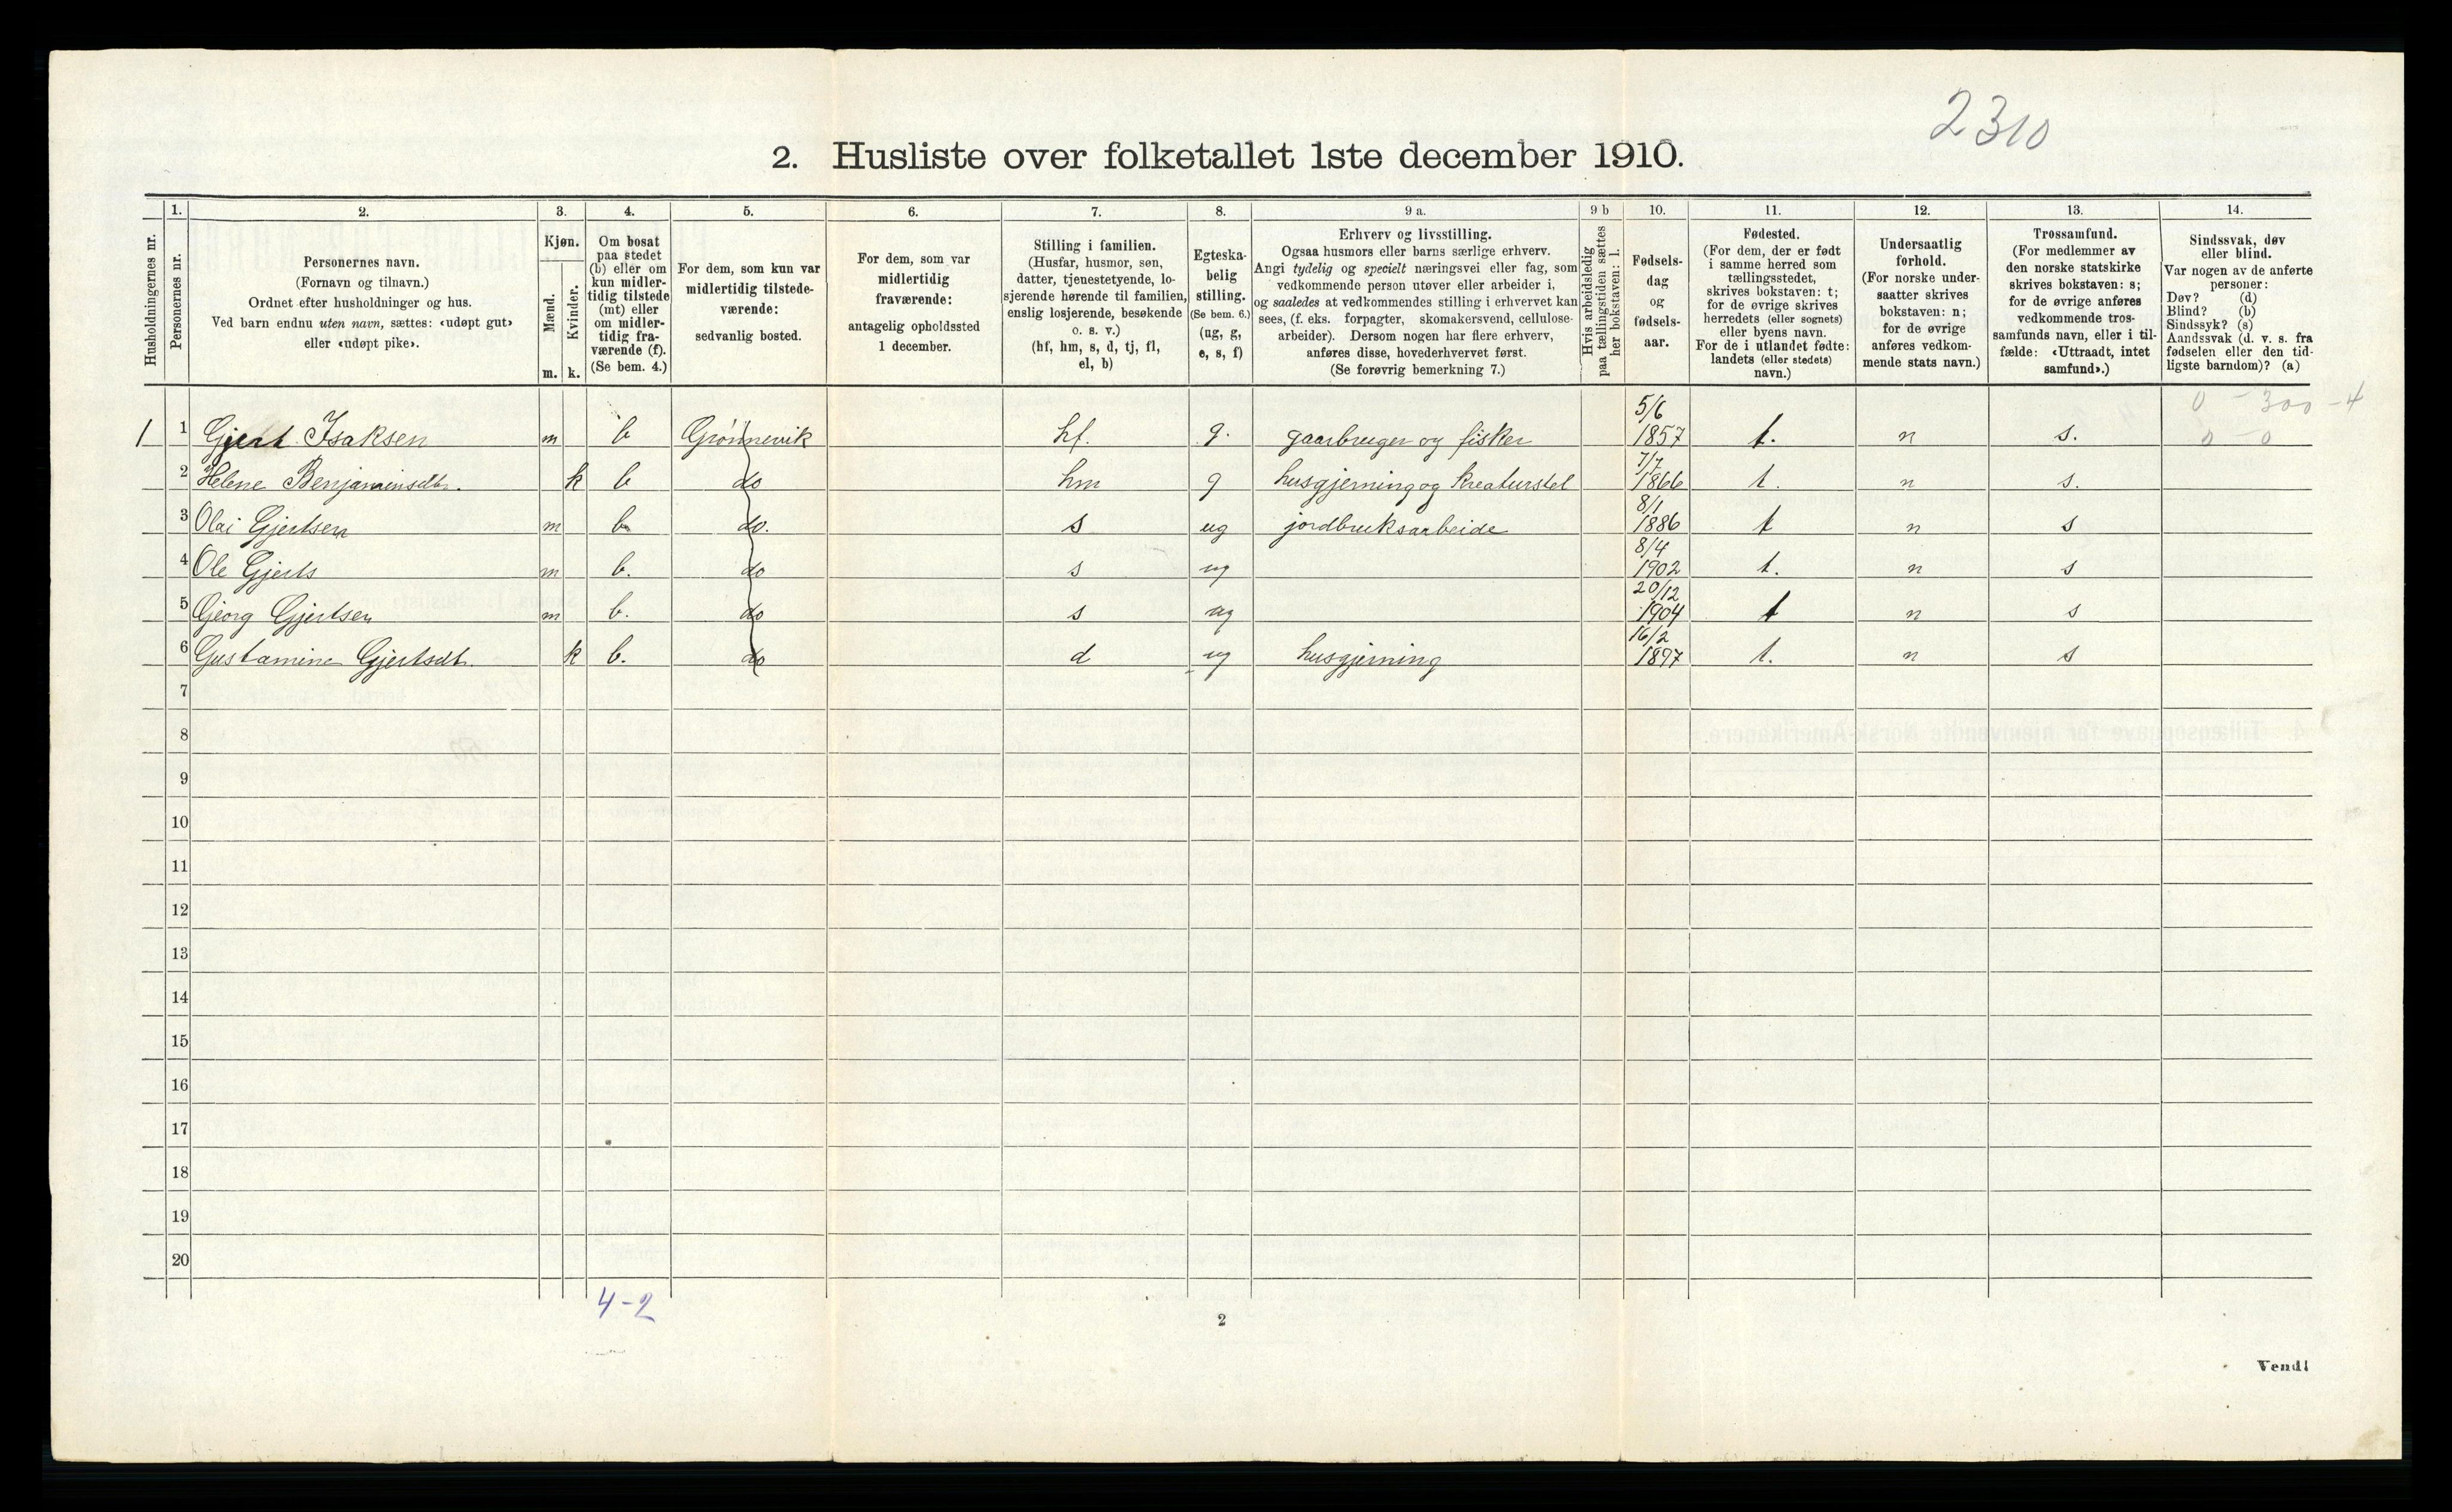 2310
2. Husliste over folketallet 1ste december 1910.
Husholdningernes nr.
1. Personernes nr.
2. Personernes navn.
(Fornavn og tilnavn.)
Ordnet efter husholdninger og hus.
Ved barn endnu uten navn, sættes: «udøpt gut»
eller «udøpt pike».
3. Kjøn.
Mænd. m.
Kvinder. k.
4. Om bosat
paa stedet
(b) eller om
kun midler-
tidig tilstede
(mt) eller
om midler-
tidig fra-
værende (f).
(Se bem. 4.)
5. For dem, som kun var
midlertidig tilstede-
værende:
sedvanlig bosted.
6. For dem, som var
midlertidig
fraværende:
antagelig opholdssted
1 december.
7. Stilling i familien.
(Husfar, husmor, søn,
datter, tjenestetyende, lo-
sjerende hørende til familien,
enslig losjerende, besøkende
o. s. v.)
(hf, hm, s, d, tj, fl,
el, b)
8. Egteska-
belig
stilling.
(Se bem. 6.)
(ug, g,
e, s, f)
9 a. Erhverv og livsstilling.
Ogsaa husmors eller barns særlige erhverv.
Angi tydelig og specielt næringsvei eller fag, som
vedkommende person utøver eller arbeider i,
og saaledes at vedkommendes stilling i erhvervet kan
sees, (f. eks. forpagter, skomakersvend, cellulose-
arbeider). Dersom nogen har flere erhverv,
anføres disse, hovederhvervet først.
(Se forøvrig bemerkning 7.)
9 b Hvis arbeidsledig
paa tællingstiden sættes
her bokstaven: l.
10. Fødsels-
dag
og
fødsels-
aar.
11. Fødested.
(For dem, der er født
i samme herred som
tællingsstedet,
skrives bokstaven: t;
for de øvrige skrives
herredets (eller sognets)
eller byens navn.
For de i utlandet fødte:
landets (eller stedets)
navn.)
12. Undersaatlig
forhold.
(For norske under-
saatter skrives
bokstaven: n;
for de øvrige
anføres vedkom-
mende stats navn.)
13. Trossamfund.
(For medlemmer av
den norske statskirke
skrives bokstaven: s;
for de øvrige anføres
vedkommende tros-
samfunds navn, eller i til-
fælde: «Uttraadt, intet
samfund».)
14. Sindssvak, døv
eller blind.
Var nogen av de anførte
personer:
Døv? (d)
Blind? (b)
Sindssyk? (s)
Aandssvak (d. v. s. fra
fødselen eller den tid-
ligste barndom)? (a)
0 - 300 - 4
1 1 Gjert Isaksen m b Grönnevik hf. g. gaarbruger og fisker 5/6 1857 t. n s. 0 - 0
2 Helene Benjaminsdtr. k b do hm g husgjerning og kreaturstel 7/7 1866 t. n s.
3 Olai Gjertsen m b do. s ug jordbruksarbeide 8/1 1886 t n s
4 Ole Gjerts m b. do s ug 8/4 1902 t. n s
5 Georg Gjertsen m b. do s ug 20/12 1904 t n s
6 Gustamine Gjertsdt. k b. do d ug husgjerning 16/2 1897 t. n s
7
8
9
10
11
12
13
14
15
16
17
18
19
20
4-2
2
Vend!